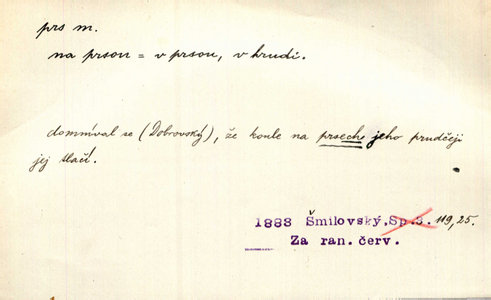 prs m.
na prsou = v prsou, v hrudi.
domníval se (Dobrovský), že koule na prsech jeho prudčeji
jej tlačí.
1888 Šmilovský. Sp.3. 119,25.
Za ran. červ.